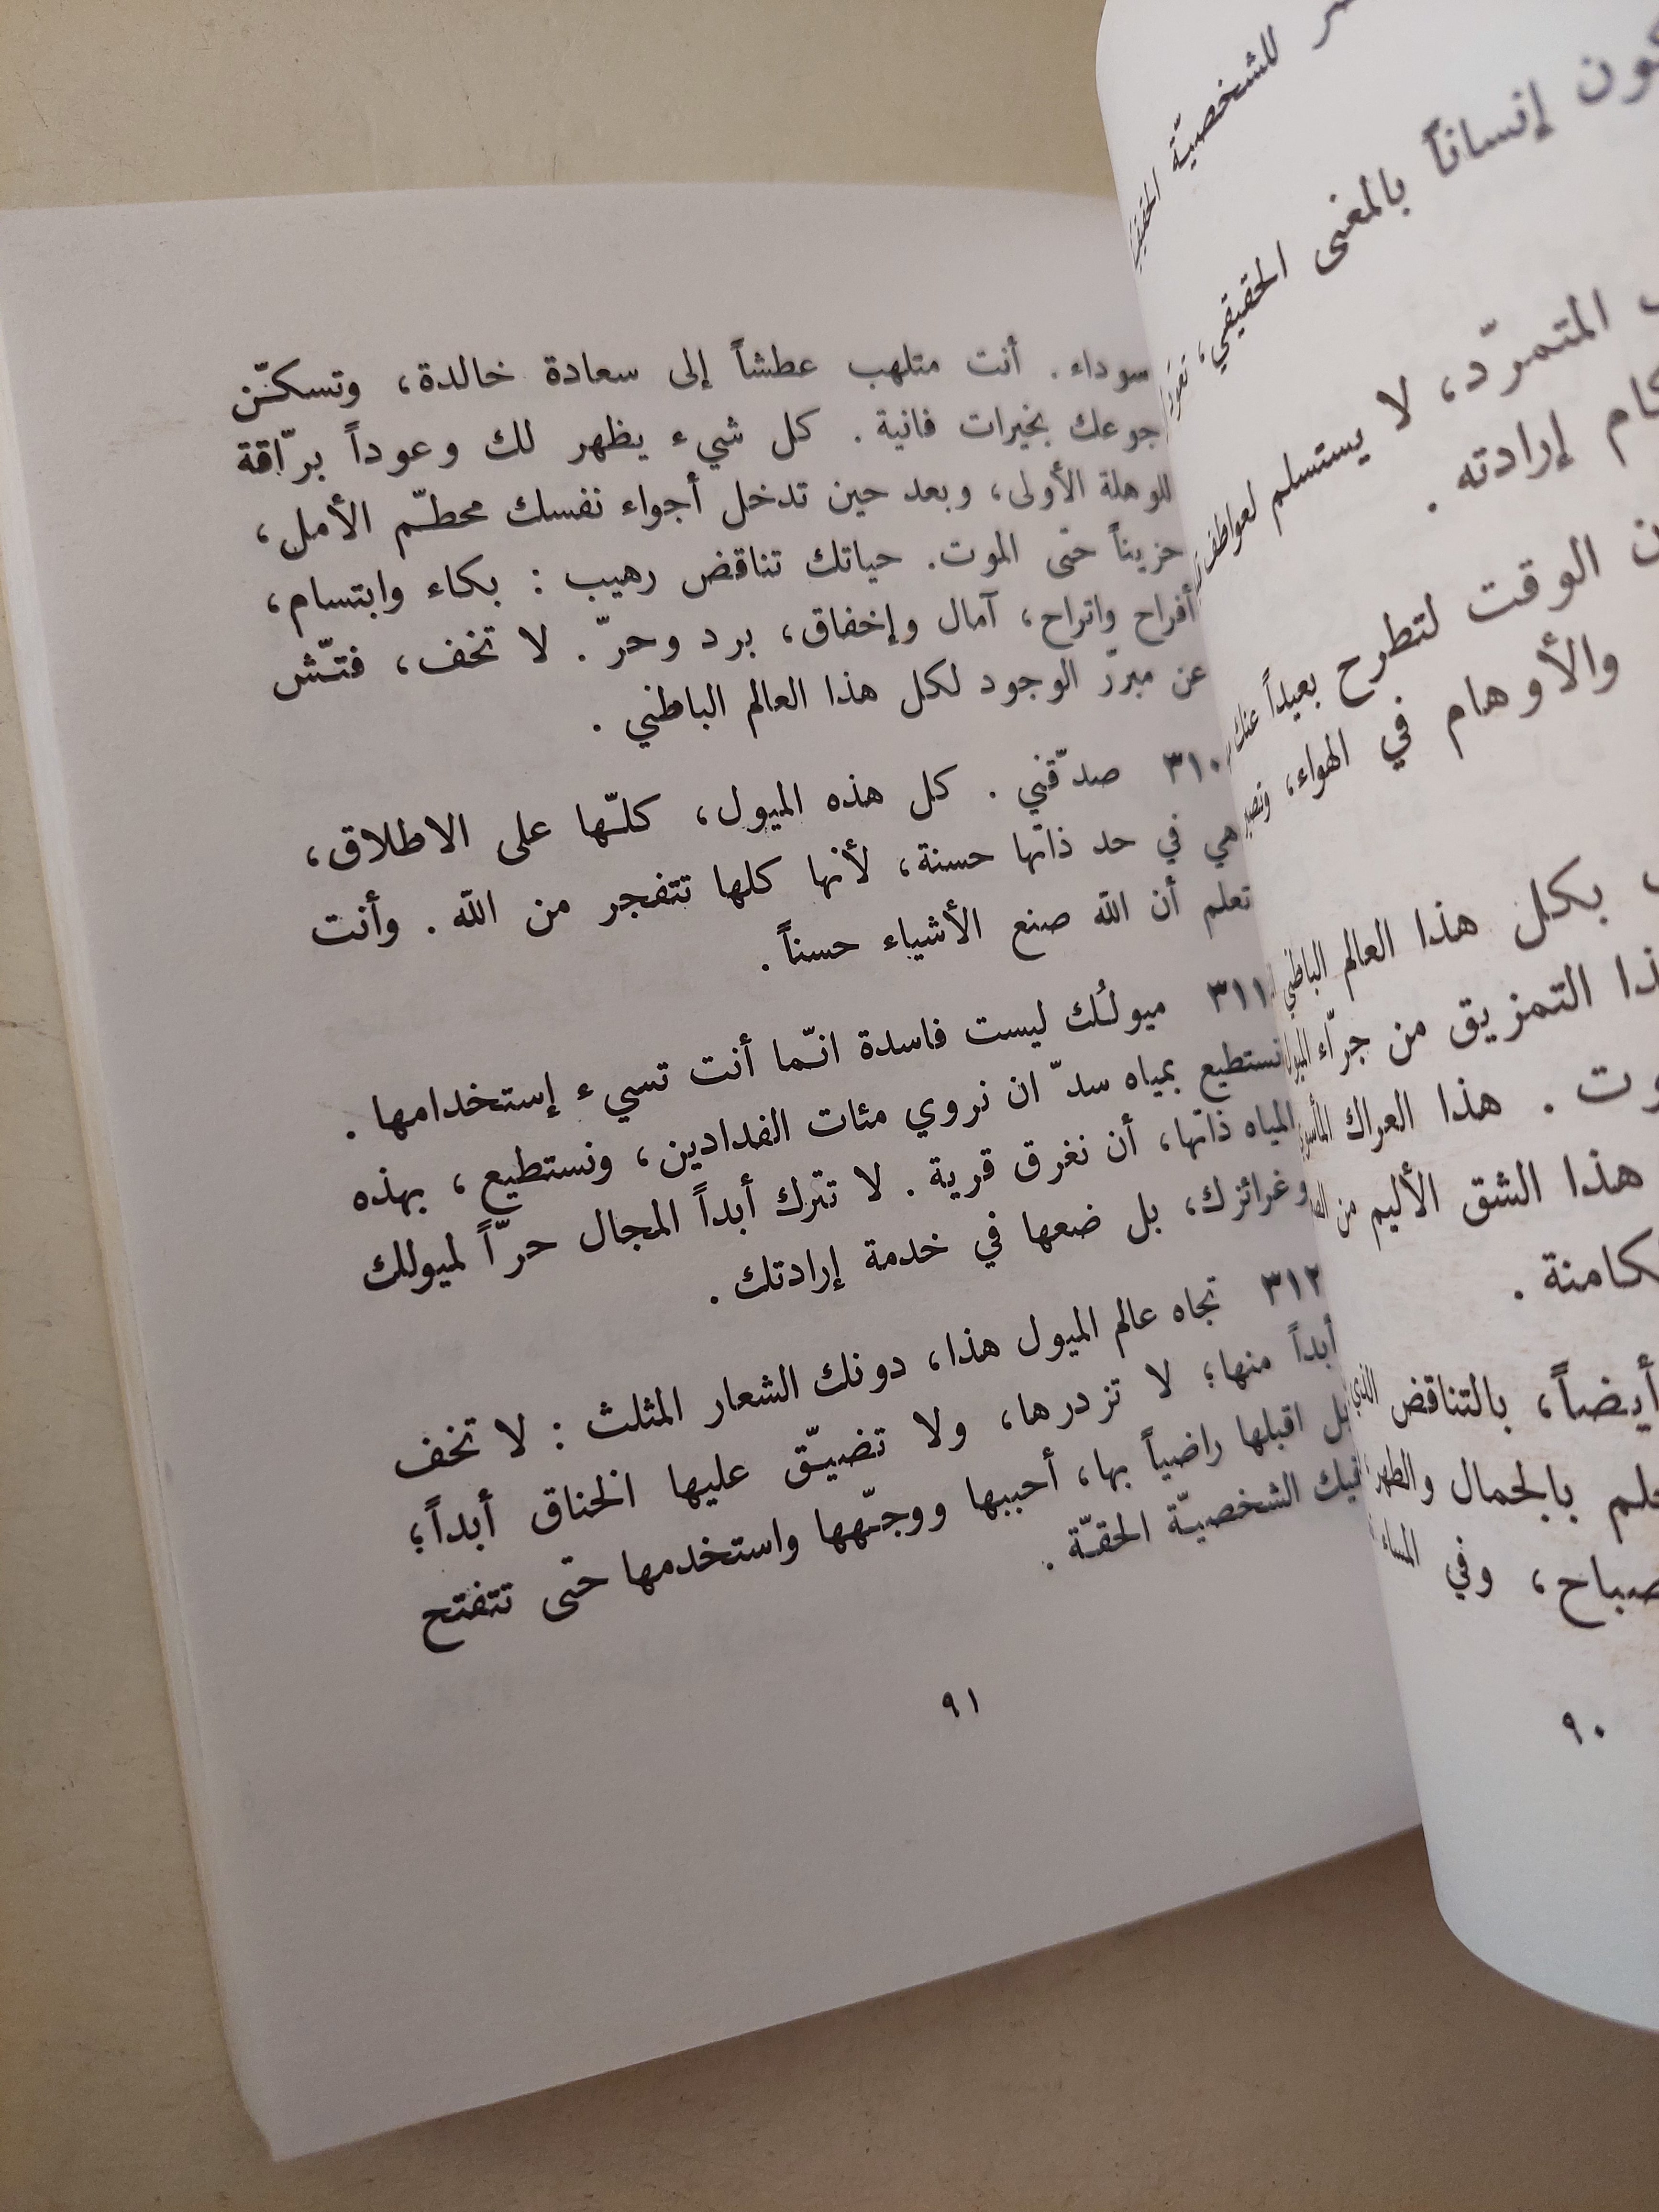 للشخصيّة
إنساناً بالمعنى الحقيقي،
المتمرّد، لا يستسلم لعواطف
إرادته .
الوقت لتطرح بعيداً عنك
والأوهام في الهواء،
بكل هذا العالم الباطني
التمزيق من جرّاء
. هذا العراك
هذا الشق الأليم من
أيضاً، بالتناقض الذي
بالجمال والطهر
وفي المساء
٩٠
سوداء . أنت متلهب عطشاً إلى سعادة خالدة، وتسكّن
جوعك بخيرات فانية . كل شيء يظهر لك وعوداً برّاقة
للوهلة الأولى، وبعد حين تدخل أجواء نفسك محطّم الأمل،
حزيناً حتى الموت. حياتك تناقض رهيب : بكاء وابتسام،
أفراح واتراح، آمال وإخفاق، برد وحرّ . لا تخف، فتّش
عن مبرّر الوجود لكل هذا العالم الباطني .
٣١٠ صدّقني . كل هذه الميول، كلّها على الاطلاق،
هي في حد ذاتها حسنة، لأنها كلها تتفجر من الله . وأنت
تعلم أن الله صنع الأشياء حسناً .
٣١١ ميولُك ليست فاسدة انّما أنت تسيء إستخدامها .
نستطيع بمياه سدّ ان نروي مئات الفدادين، ونستطيع، بهذه
المياه ذاتها، أن نغرق قرية . لا تترك أبداً المجال حرّاً لميولك
وغرائزك، بل ضعها في خدمة إرادتك .
٣١٢ تجاه عالم الميول هذا، دونك الشعار المثلث : لا تخف
أبداً منها؛ لا تزدرها، ولا تضيّق عليها الخناق أبداً؛
بل اقبلها راضياً بها، أحببها ووجّهها واستخدمها حتى تتفتح
فيك الشخصيّة الحقّة .
٩١